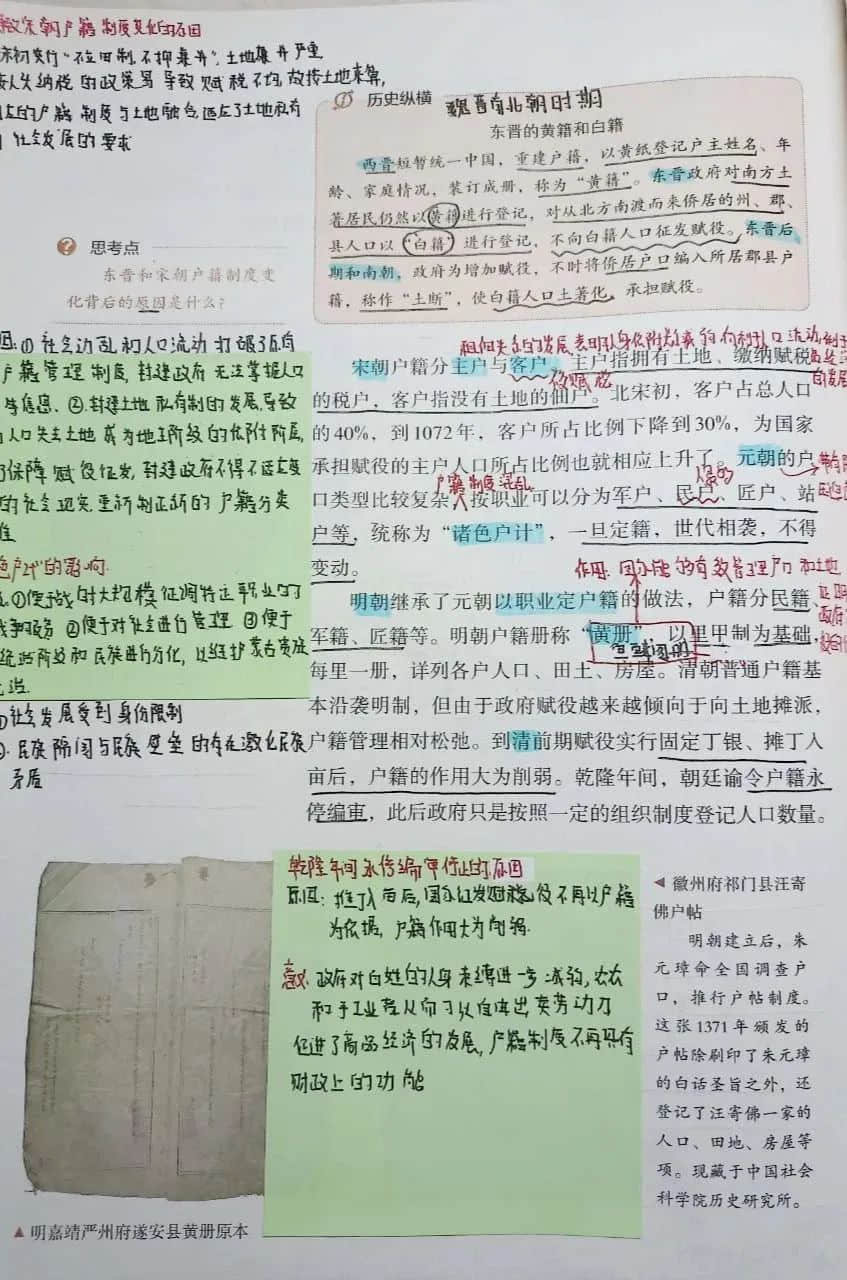 致宋朝户籍制度变化的原因
宋初实行“不立田制,不抑兼并”,土地兼并严重
按人头纳税的政策易导致赋税不均,故按土地来算,
的户籍制度与土地融合,适应了土地私有
社会发展的要求
历史纵横 魏晋南北朝时期
东晋的黄籍和白籍
西晋短暂统一中国,重建户籍,以黄纸登记户主姓名、年
龄、家庭情况,装订成册,称为“黄籍”。东晋政府对南方土
著居民仍然以黄籍进行登记,对从北方南渡而来侨居的州、郡、
县人口以“白籍”进行登记,不向白籍人口征发赋役。东晋后
期和南朝,政府为增加赋役,不时将侨居户口编入所居郡县户
籍,称作“土断”,使白籍人口土著化,承担赋役。
思考点
东晋和宋朝户籍制度变
化背后的原因是什么?
因:①社会动乱和人口流动打破了原有
户籍管理制度,封建政府无法掌握人口
信息.②封建土地私有制的发展,导致
人口失去土地成为地主阶级的依附阶层,
保障赋役征发,封建政府不得不适应
的社会现实,重新制定新的户籍分类
色户计”的影响
①便于战时大规模征调特定职业的
服务 ②便于对社会进行管理 ③便于
统治阶级和民族进行分化,以维护蒙古贵族
统治.
①社会发展受到身份限制
②.民族隔阂与民族壁垒的存在激化民族
矛盾
租佃关系的发展,表明人身依附关系减弱,有利于人口流动
宋朝户籍分主户与客户,主户指拥有土地、缴纳赋税
的税户,客户指没有土地的佃户。北宋初,客户占总人口
的40%,到1072年,客户所占比例下降到30%,为国家
承担赋役的主户人口所占比例也就相应上升了。元朝的户
户籍制度混乱
口类型比较复杂,按职业可以分为军户、民户、匠户、站
户等,统称为“诸色户计”,一旦定籍,世代相袭,不得
变动。
作用:国家能够有效管理户口和土地
明朝继承了元朝以职业定户籍的做法,户籍分民籍、
军籍、匠籍等。明朝户籍册称“黄册”,以里甲制为基础,
鱼鳞图册
每里一册,详列各户人口、田土、房屋。清朝普通户籍基
本沿袭明制,但由于政府赋役越来越倾向于向土地摊派,
户籍管理相对松弛。到清前期赋役实行固定丁银、摊丁入
亩后,户籍的作用大为削弱。乾隆年间,朝廷谕令户籍永
停编审,此后政府只是按照一定的组织制度登记人口数量。
乾隆年间永停编审停止的原因
原因:摊丁入亩后,国家征发赋税徭役不再以户籍
为依据,户籍作用大为削弱.
意义:政府对百姓的人身束缚进一步减弱,农民
和手工业者从而可以自由出卖劳动力
促进了商品经济的发展,户籍制度不再具有
财政上的功能
◀ 徽州府祁门县汪寄
佛户帖
明朝建立后,朱
元璋命全国调查户
口,推行户帖制度。
这张1371年颁发的
户帖除刷印了朱元璋
的白话圣旨之外,还
登记了汪寄佛一家的
人口、田地、房屋等
项。现藏于中国社会
科学院历史研究所。
▲ 明嘉靖严州府遂安县黄册原本